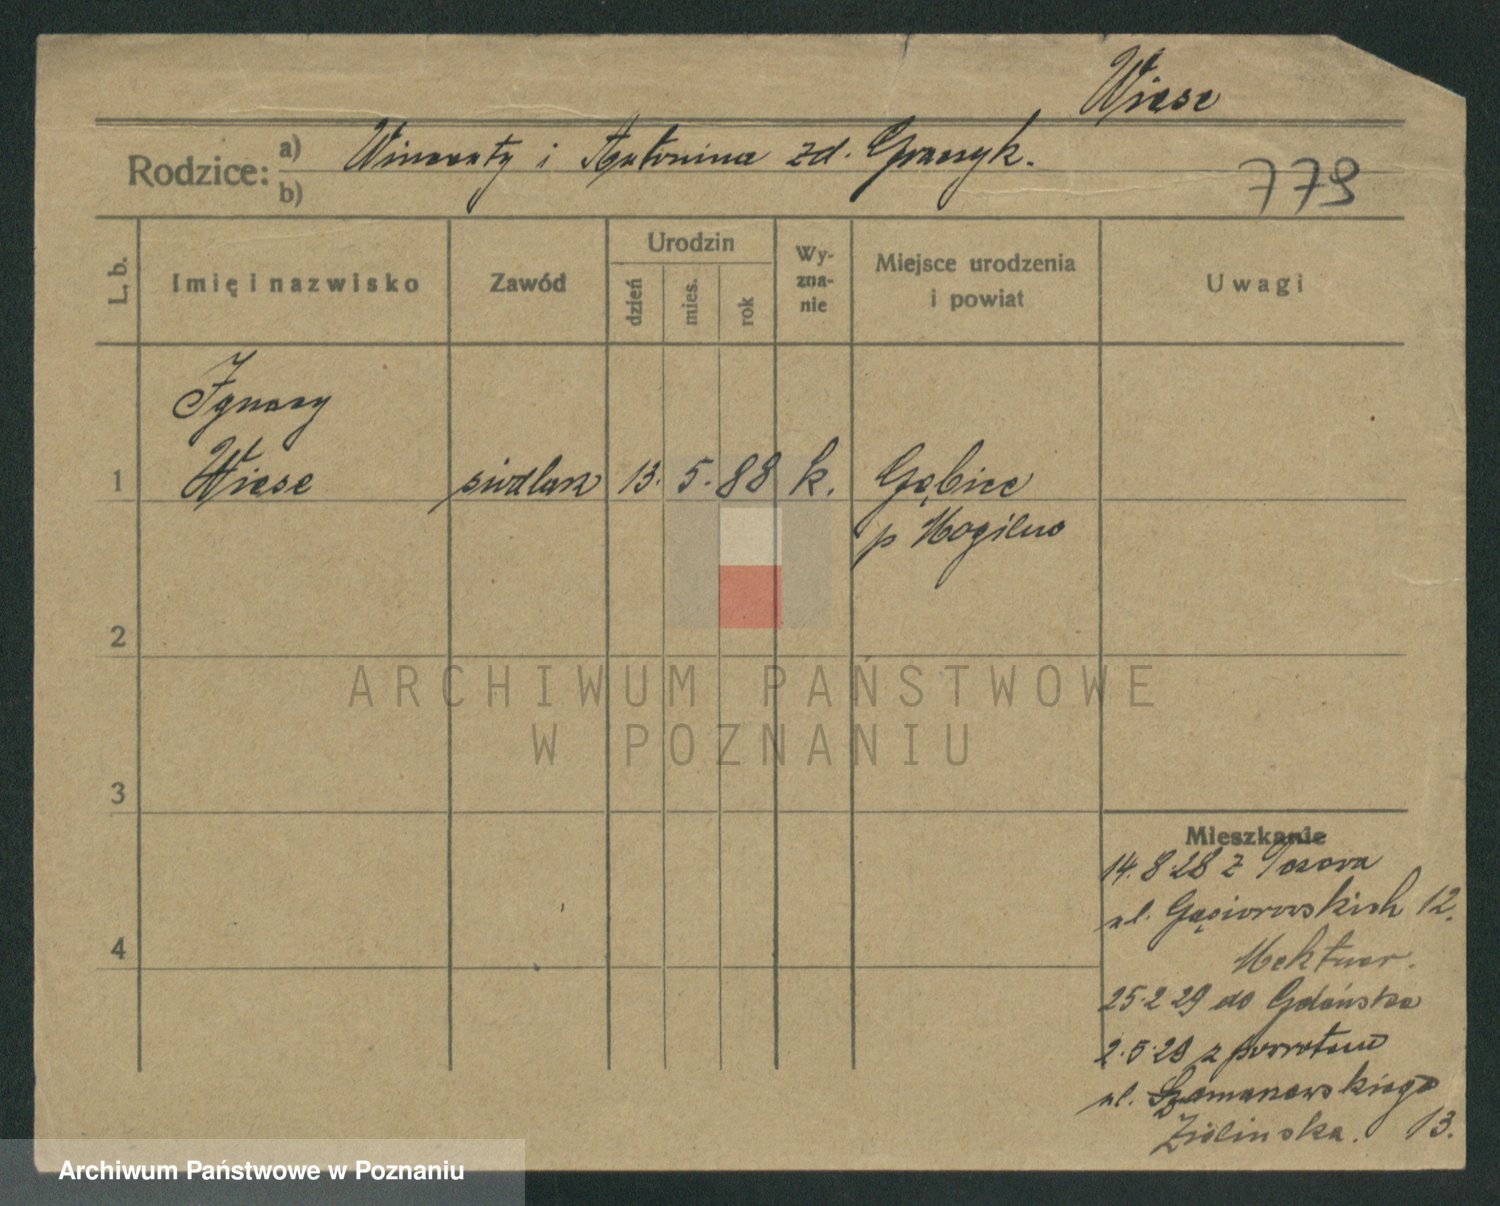 Wiese
Rodzice: a) Wincenty i Antonina zd.
b)
779
L. b.
Imię i nazwisko
Zawód
Urodzin
dzień
mies.
rok
Wy-
zna-
nie
Miejsce urodzenia
i powiat
Uwagi
Ignacy
1 Wiese siodlarz 13. 5. 88 k. Gębice
p Mogilno
2
ARCHIWUM PAŃSTWOWE
W POZNANIU
3
Mieszkanie
14. 8 28 z
ul. Gąsiorowskich 12.
4
25 2 29 do Gdańska
2. 5 29 z powrotem
ul. Szamarzewskiego
Zielinska. 13.
Archiwum Państwowe w Poznaniu